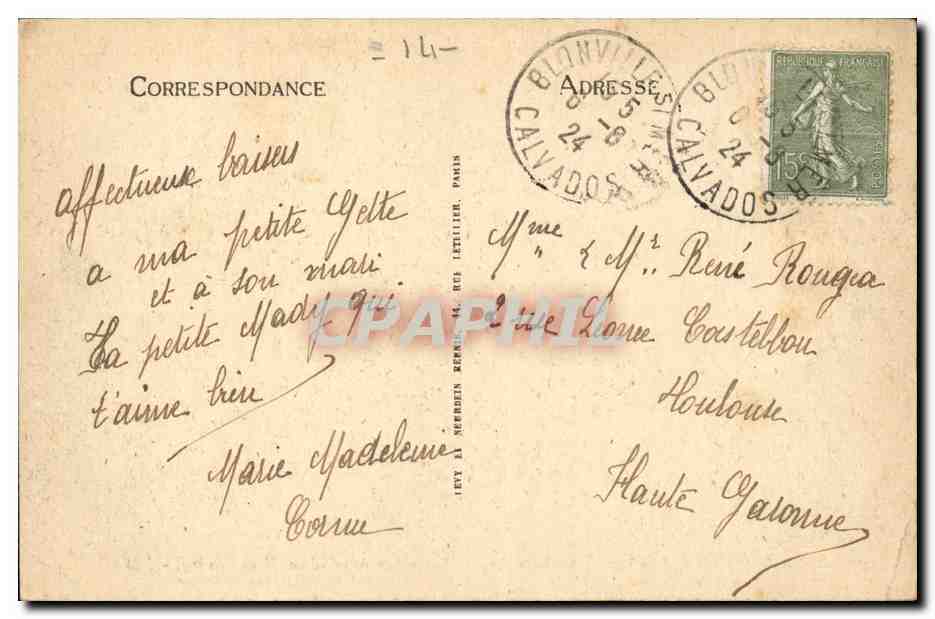 = 14 -
CORRESPONDANCE
ADRESSE
BLONVILLE S/MER
5 -8
24
CALVADOS
BLONVILLE S/MER
5 -8
24
CALVADOS
REPUBLIQUE FRANÇAISE
15c
POSTES
affectueux baisers
a ma petite Gette
et à son mari
Ta petite Mady qui
t'aime bien
Marie Madeleine
LEVY ET NEURDEIN REUNIS 44, RUE LETELLIER, PARIS
Mme & Mr. René Rougea
2 rue Leonce Castelbou
Toulouse
Haute Garonne
CPAPHIL